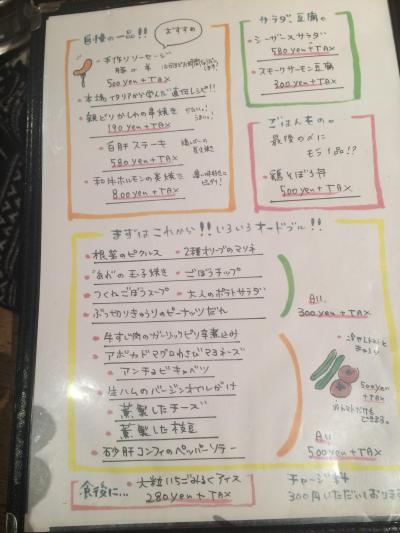 自慢の一品!!
おすすめ
手作りソーセージ
500yen+TAX
本場イタリアから学んだ直伝レシピ!!
親どりかしわの串焼き
190yen+TAX
白肝ステーキ
580yen+TAX
和牛ホルモンの炙焼き
800yen+TAX
サラダ、豆腐の
シーザースサラダ
580yen+TAX
スモークサーモン豆腐
300yen+TAX
ごはんもの。
最後の〆に
もう1品!?
鶏そぼろ丼
500yen+TAX
まずはこれかい!!いろいろオードブル!!
根菜のピクルス
2種オリーブのマリネ
"あれ"の玉子焼き
ごぼうチップ
つくれごぼうスープ
大人のポテトサラダ
ぶつ切りきゅうりのピーナッツだれ
All.
300yen+TAX
牛すじ肉のガーリックピリ辛煮込み
アボカドマグロわさびマヨネーズ
アンチョビキャベツ
生ハムのバージンオイルがけ
薫製したチーズ
薫製した枝豆
砂肝コンフィのペッパーソテー
冷やしトマトと
きゅうり
500yen
+TAX
All
500yen+TAX
食後に…
大粒いちごみるくアイス
280yen+TAX
チャージ料
300円いただいております